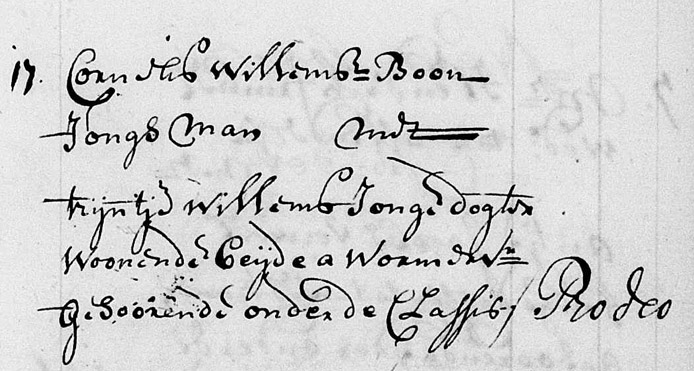 17. Cornelis Willemsz Boon
Jonge Man met
trijntje Willems Jonge dogter
Woonende beijde a Wormerv:r
gehoorende onder de Classis / Pro deo